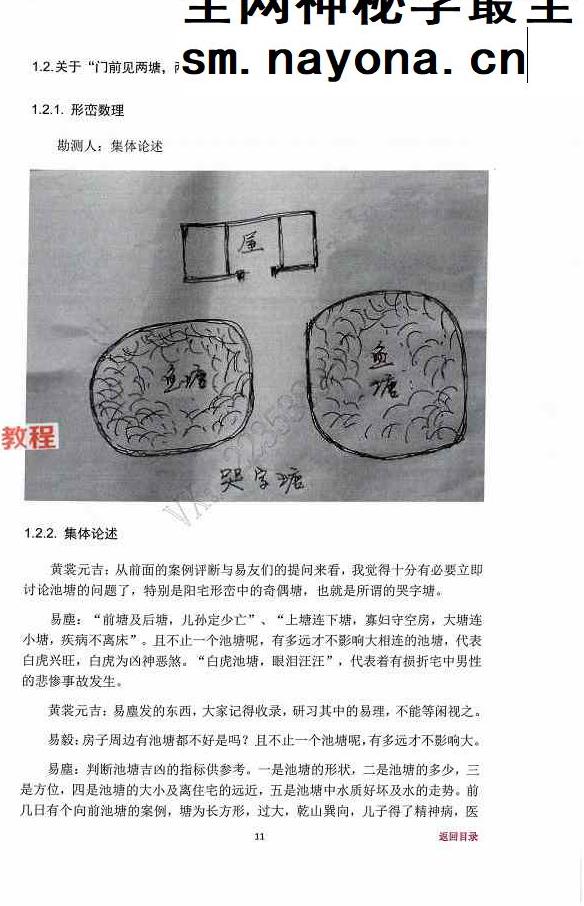 全网神秘学最全
1.2.关于“门前见两塘，
sm.nayona.cn
1.2.1. 形峦数理
勘测人：集体论述
屋
鱼塘
鱼
塘
教程
哭字塘
1.2.2. 集体论述
黄裳元吉：从前面的案例评断与易友们的提问来看，我觉得十分有必要立即
讨论池塘的问题了，特别是阳宅形峦中的奇偶塘，也就是所谓的哭字塘。
易塵：“前塘及后塘，儿孙定少亡”、“上塘连下塘，寡妇守空房，大塘连
小塘，疾病不离床”。且不止一个池塘呢，有多远才不影响大相连的池塘，代表
白虎兴旺，白虎为凶神恶煞。“白虎池塘，眼泪汪汪”，代表着有损折宅中男性
的悲惨事故发生。
黄裳元吉：易塵发的东西，大家记得收录，研习其中的易理，不能等闲视之。
易毅：房子周边有池塘都不好是吗？且不止一个池塘呢，有多远才不影响大。
易塵：判断池塘吉凶的指标供参考。一是池塘的形状，二是池塘的多少，三
是方位，四是池塘的大小及离住宅的远近，五是池塘中水质好坏及水的走势。前
几日有个向前池塘的案例，塘为长方形，过大，乾山巽向，儿子得了精神病，医
11
返回目录